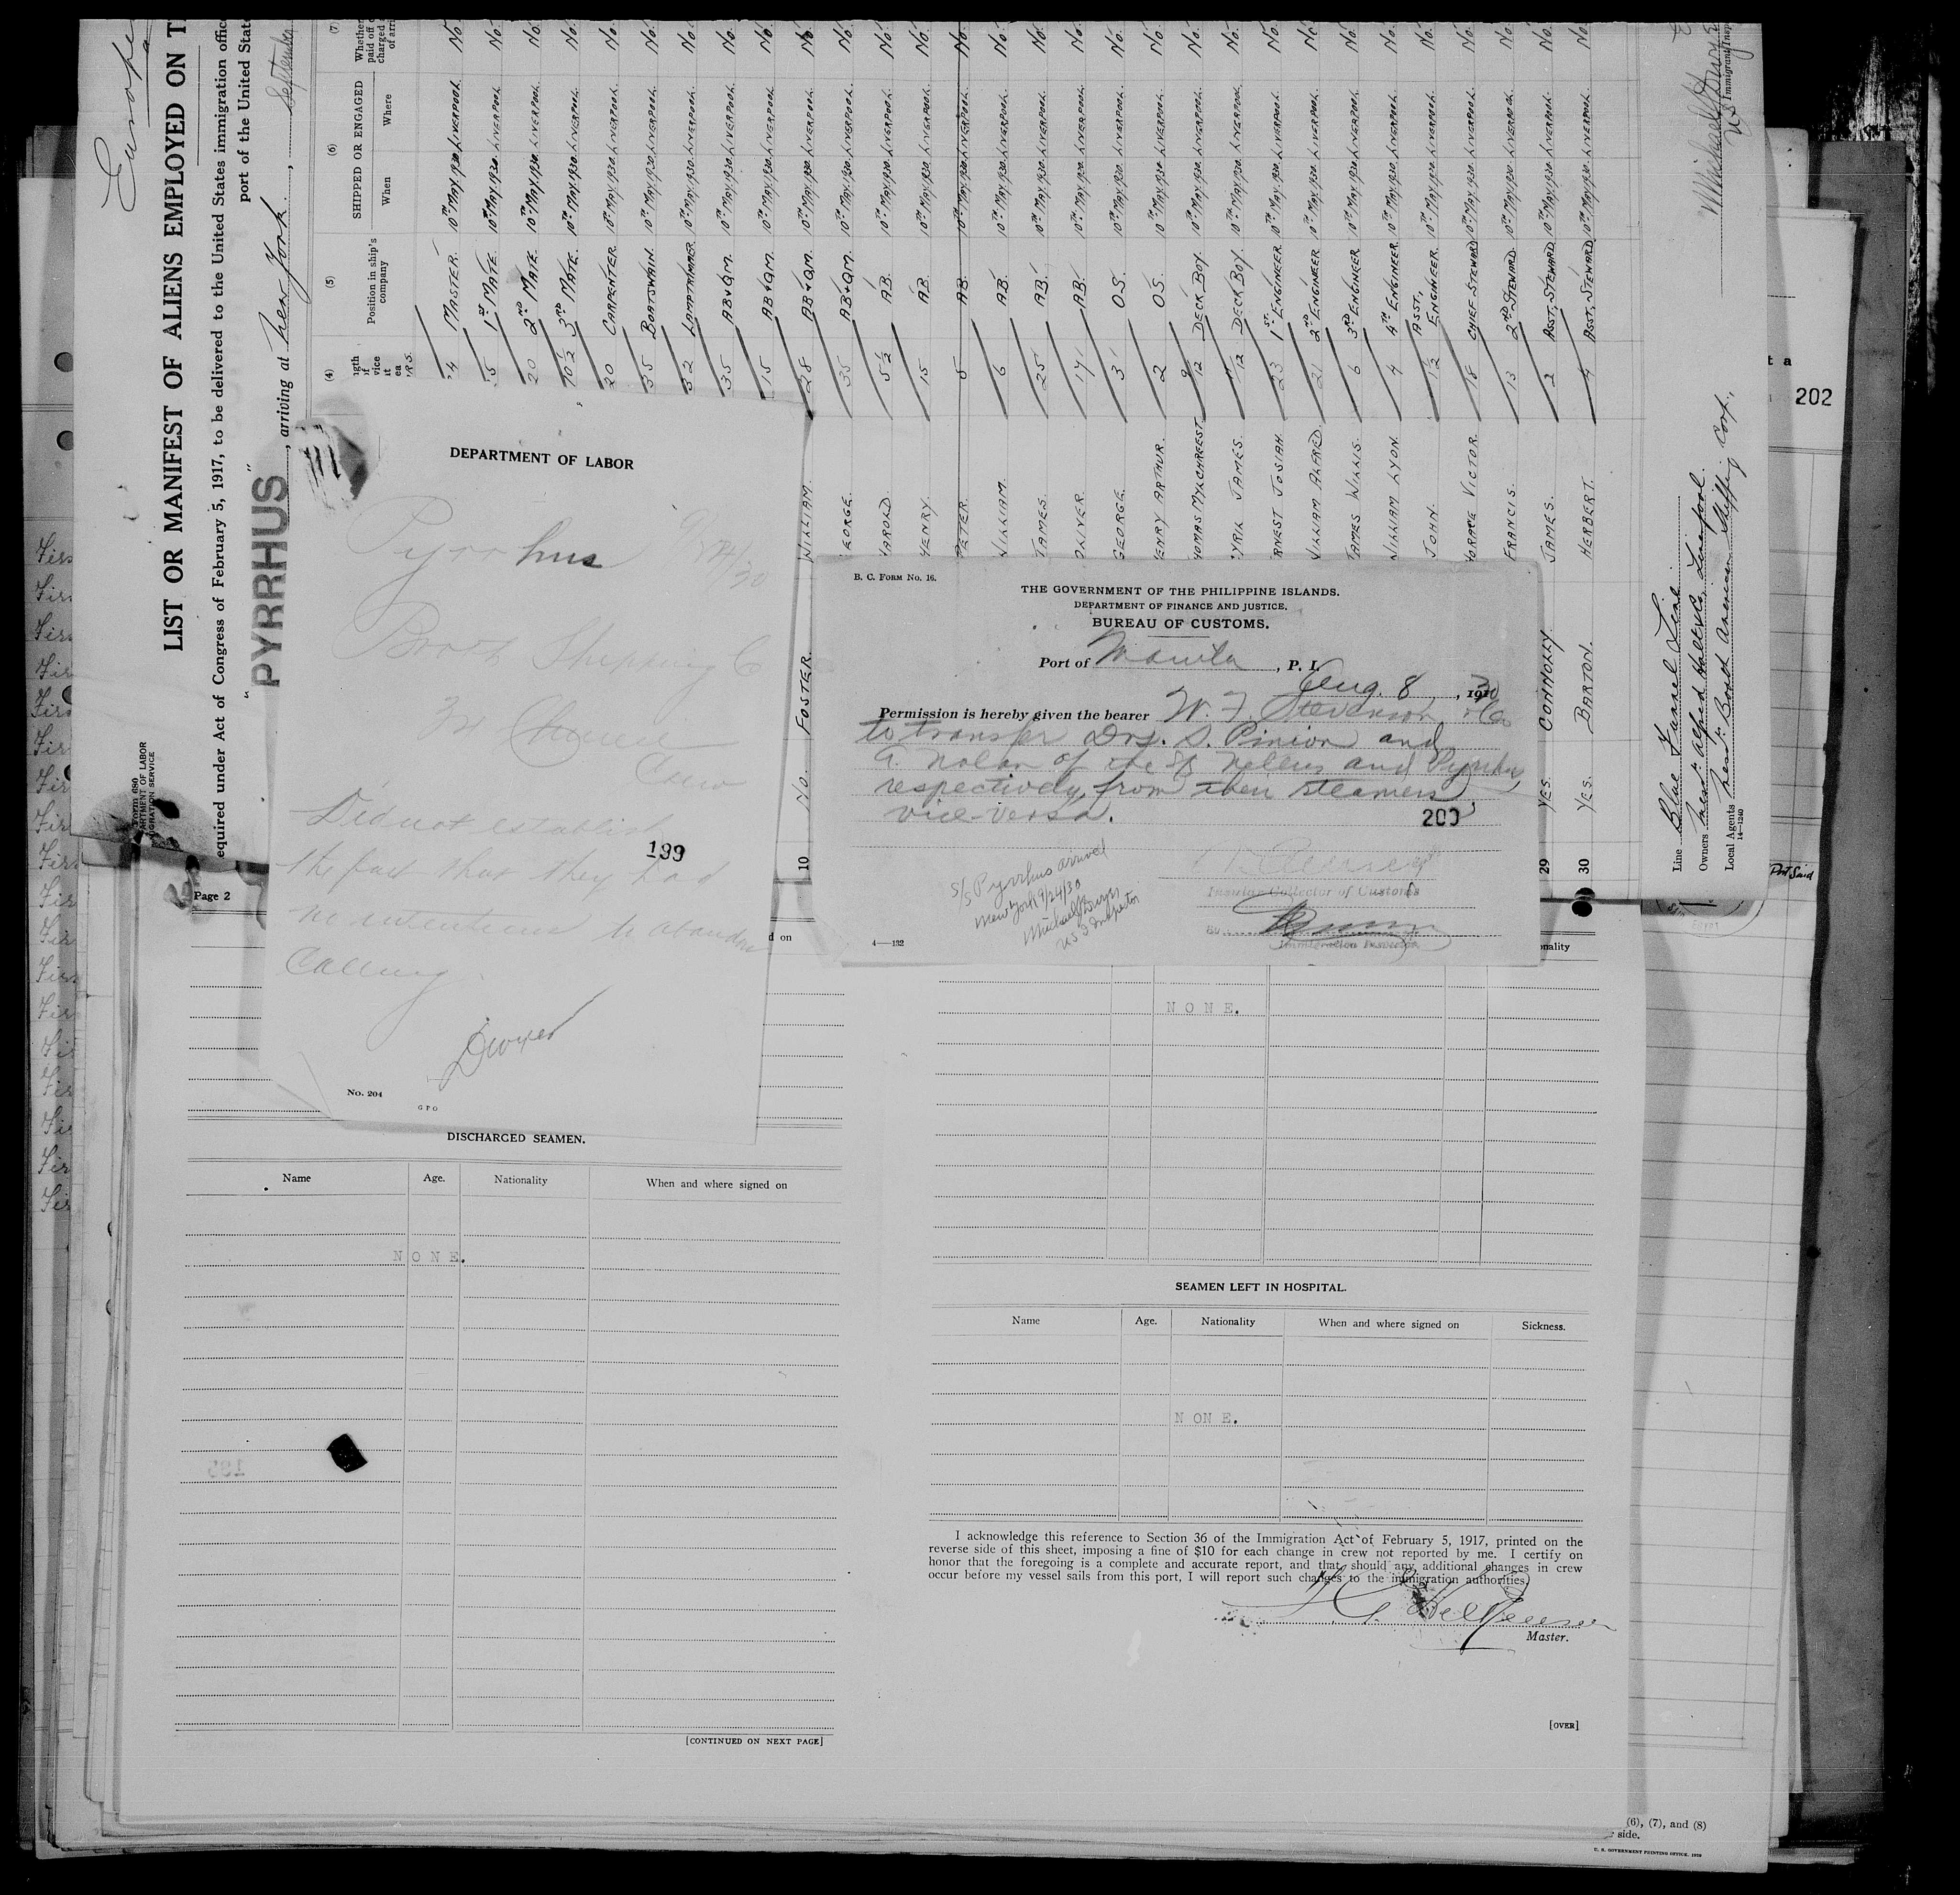 Europe
LIST OR MANIFEST OF ALIENS EMPLOYED ON T
equired under Act of Congress of February 5, 1917, to be delivered to the United States immigration offic
port of the United Stat
"PYRRHUS", arriving at New York, September
Form 680
ARTMENT OF LABOR
MIGRATION SERVICE
(4)
ngth
of
vice
at
ea
YRS.
(5)
Position in ship's
company
(6)
SHIPPED OR ENGAGED
When
Where
(7)
Whether
paid off
charged
of arri
4 MASTER. 10TH MAY, 1930. LIVERPOOL. No.
5 1ST MATE. 10TH MAY, 1930. LIVERPOOL. No.
20 2ND MATE. 10TH MAY, 1930. LIVERPOOL. No.
10½ 3RD MATE. 10TH MAY, 1930. LIVERPOOL. No.
20 CARPENTER. 10TH MAY, 1930. LIVERPOOL. No.
35 BOATSWAIN. 10TH MAY, 1930. LIVERPOOL. No.
32 LAMPTRIMMER. 10TH MAY, 1930. LIVERPOOL. No.
35 AB + QM. 10TH MAY, 1930. LIVERPOOL. No.
15 AB + QM. 10TH MAY, 1930. LIVERPOOL. No.
10 No. FOSTER. WILLIAM. 28 AB + QM. 10TH MAY, 1930. LIVERPOOL. No.
EORGE. 35 AB + QM. 10TH MAY, 1930. LIVERPOOL. No.
HAROLD 5½ A.B. 10TH MAY, 1930. LIVERPOOL. No.
HENRY. 15 A.B. 10TH MAY, 1930. LIVERPOOL. No.
PETER. 5 A.B. 10TH MAY, 1930. LIVERPOOL. No.
WILLIAM. 6 A.B. 10TH MAY, 1930. LIVERPOOL. No.
JAMES. 25 A.B. 10TH MAY, 1930. LIVERPOOL. No.
OLIVER. 17 A.B. 10TH MAY, 1930. LIVERPOOL. No.
GEORGE. 3 O.S. 10TH MAY, 1930. LIVERPOOL. No.
HENRY ARTHUR. 2 O.S. 10TH MAY, 1930. LIVERPOOL. No.
HOMAS MYLCHREEST. 9/12 DECK BOY. 10TH MAY, 1930. LIVERPOOL. No.
YRIL JAMES. /12 DECK BOY. 10TH MAY, 1930. LIVERPOOL. No.
RNEST JOSIAH. 23 1ST ENGINEER. 10TH MAY, 1930. LIVERPOOL. No.
WILLIAM ALFRED. 21 2ND ENGINEER 10TH MAY, 1930. LIVERPOOL. No.
JAMES WILLIS. 6 3RD ENGINEER 10TH MAY, 1930. LIVERPOOL. No.
WILLIAM LYON. 4 4TH ENGINEER 10TH MAY, 1930. LIVERPOOL. No.
JOHN. 1½ ASST. ENGINEER. 10TH MAY, 1930. LIVERPOOL. No.
HORACE VICTOR. 18 CHIEF STEWARD 10TH MAY, 1930. LIVERPOOL. No.
FRANCIS. 13 2ND STEWARD. 10TH MAY, 1930. LIVERPOOL. No.
29 YES. CONNOLLY JAMES. 2 ASST. STEWARD 10TH MAY, 1930. LIVERPOOL. No.
30 YES. BARTON. HERBERT. 4 ASST. STEWARD 10TH MAY, 1930. LIVERPOOL. No.
Line Blue Funnel Line
Owners Messrs. Alfred Holt & Co. Liverpool.
Local Agents Messrs. Booth American Shipping Corp.,
14—1240
Immigrant Insp
DEPARTMENT OF LABOR
Pyrrhus
Booth Shipping Co
Crew
Did not establish
199
the fact that they had
no intentions to abandon
Calling.
Dwyer
No. 204
GPO
B. C. FORM No. 16.
THE GOVERNMENT OF THE PHILIPPINE ISLANDS.
DEPARTMENT OF FINANCE AND JUSTICE.
BUREAU OF CUSTOMS.
Port of Manila, P. I.
Aug. 8, 1930
Permission is hereby given the bearer W. F. Stevenson & Co
to transfer Drs. S. Pinion and
A. Nolan of the SS Nelleus and Pyrrhus,
respectively, from their steamers
vice-versa.
200
Insular Collector of Customs
By
Immigration Inspector
S/S Pyrrhus arrived
New York 9/24/30
Michael J Dwyer
US I Inspector
4—132
202
Port Said
Page 2
d on
nality
NONE.
DISCHARGED SEAMEN.
Name Age. Nationality When and where signed on
NONE.
[CONTINUED ON NEXT PAGE]
SEAMEN LEFT IN HOSPITAL.
Name Age. Nationality When and where signed on Sickness.
NONE.
I acknowledge this reference to Section 36 of the Immigration Act of February 5, 1917, printed on the
reverse side of this sheet, imposing a fine of $10 for each change in crew not reported by me. I certify on
honor that the foregoing is a complete and accurate report, and that should any additional changes in crew
occur before my vessel sails from this port, I will report such changes to the immigration authorities.
Master.
[OVER]
(6), (7), and (8)
side.
U. S. GOVERNMENT PRINTING OFFICE. 1930